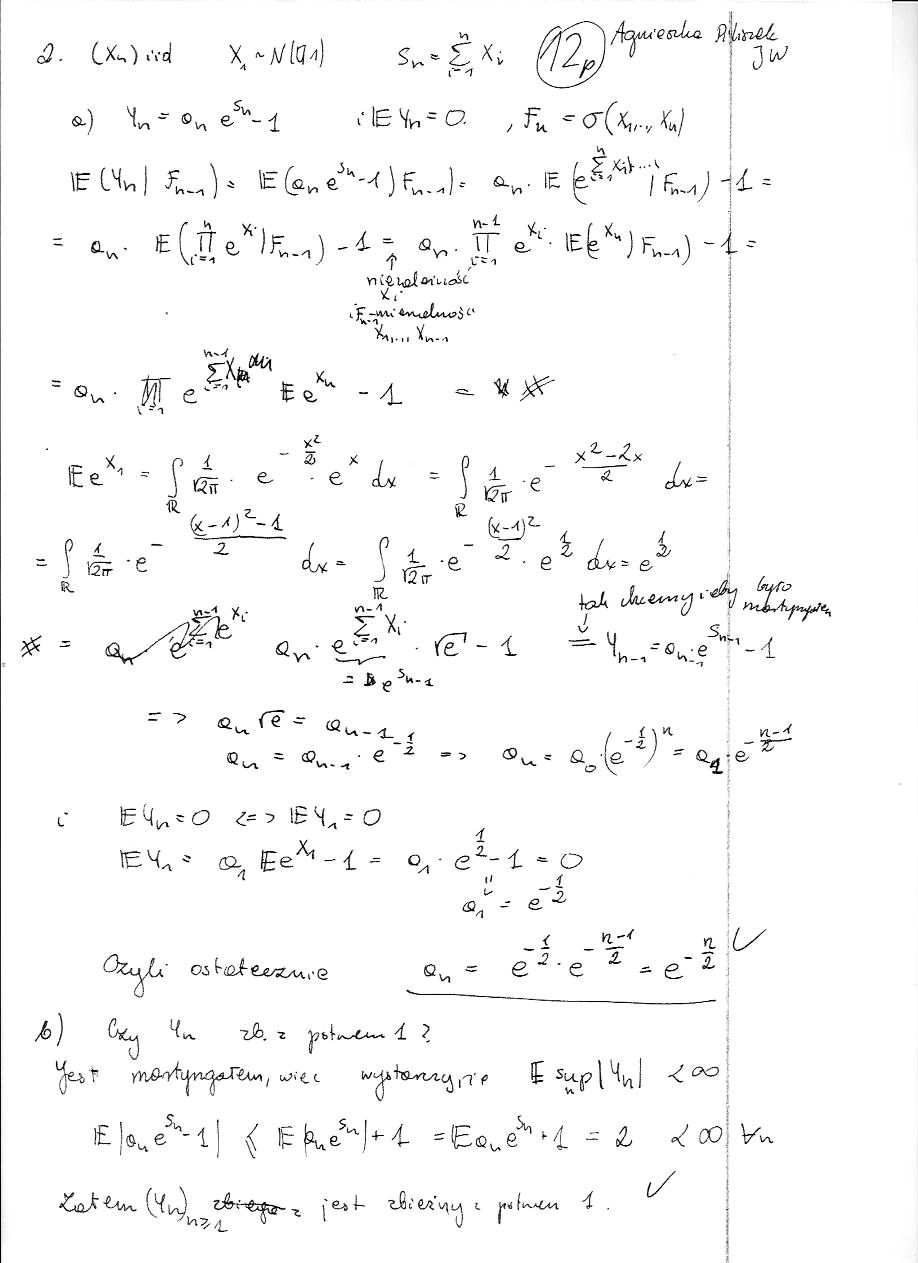 2. (Xn) iid X₁ ~ N(0,1) Sn = ∑_{i=1}^{n} Xi 12p Agnieszka
JW
a) Yn = an e^{Sn} - 1 i 𝔼 Yn = 0. , Fn = σ(X₁,..., Xn)
𝔼(Yn | F_{n-1}) = 𝔼(an e^{Sn} - 1 | F_{n-1}) = an · 𝔼(e^{∑_{i=1}^{n} Xi} | F_{n-1}) - 1 =
= an · 𝔼(∏_{i=1}^{n} e^{Xi} | F_{n-1}) - 1 = an · ∏_{i=1}^{n-1} e^{Xi} · 𝔼(e^{Xn} | F_{n-1}) - 1 =
↑
niezależność
Xi
i F_{n-1}-mierzalność
X₁,..., X_{n-1}
= an · e^{∑_{i=1}^{n-1} Xi} 𝔼 e^{Xn} - 1 = ⋇
𝔼 e^{X₁} = ∫_ℝ 1/√2π · e^{-x²/2} · e^x dx = ∫_ℝ 1/√2π · e^{-(x²-2x)/2} dx =
= ∫_ℝ 1/√2π · e^{-((x-1)²-1)/2} dx = ∫_ℝ 1/√2π · e^{-(x-1)²/2} · e^{1/2} dx = e^{1/2}
tak chcemy żeby było
martyngałem
⋇ = an · e^{∑_{i=1}^{n-1} Xi} · √e - 1 = Y_{n-1} = a_{n-1} e^{S_{n-1}} - 1
= e^{S_{n-1}}
=> an √e = a_{n-1}
an = a_{n-1} · e^{-1/2} => an = a₀ · (e^{-1/2})^n = a₁ · e^{-(n-1)/2}
i 𝔼Yn = 0 <=> 𝔼Y₁ = 0
𝔼Y₁ = a₁ 𝔼e^{X₁} - 1 = a₁ · e^{1/2} - 1 = 0
a₁ = e^{-1/2}
Czyli ostatecznie an = e^{-1/2} · e^{-(n-1)/2} = e^{-n/2} ✓
b) Czy Yn zb. z pstwem 1?
Jest martyngałem, więc wystarczy, że 𝔼 sup_n |Yn| < ∞
𝔼|an e^{Sn} - 1| ≤ 𝔼|an e^{Sn}| + 1 = 𝔼an e^{Sn} + 1 = 2 < ∞ ∀n
Zatem (Yn)_{n≥1} jest zbieżny z pstwem 1. ✓